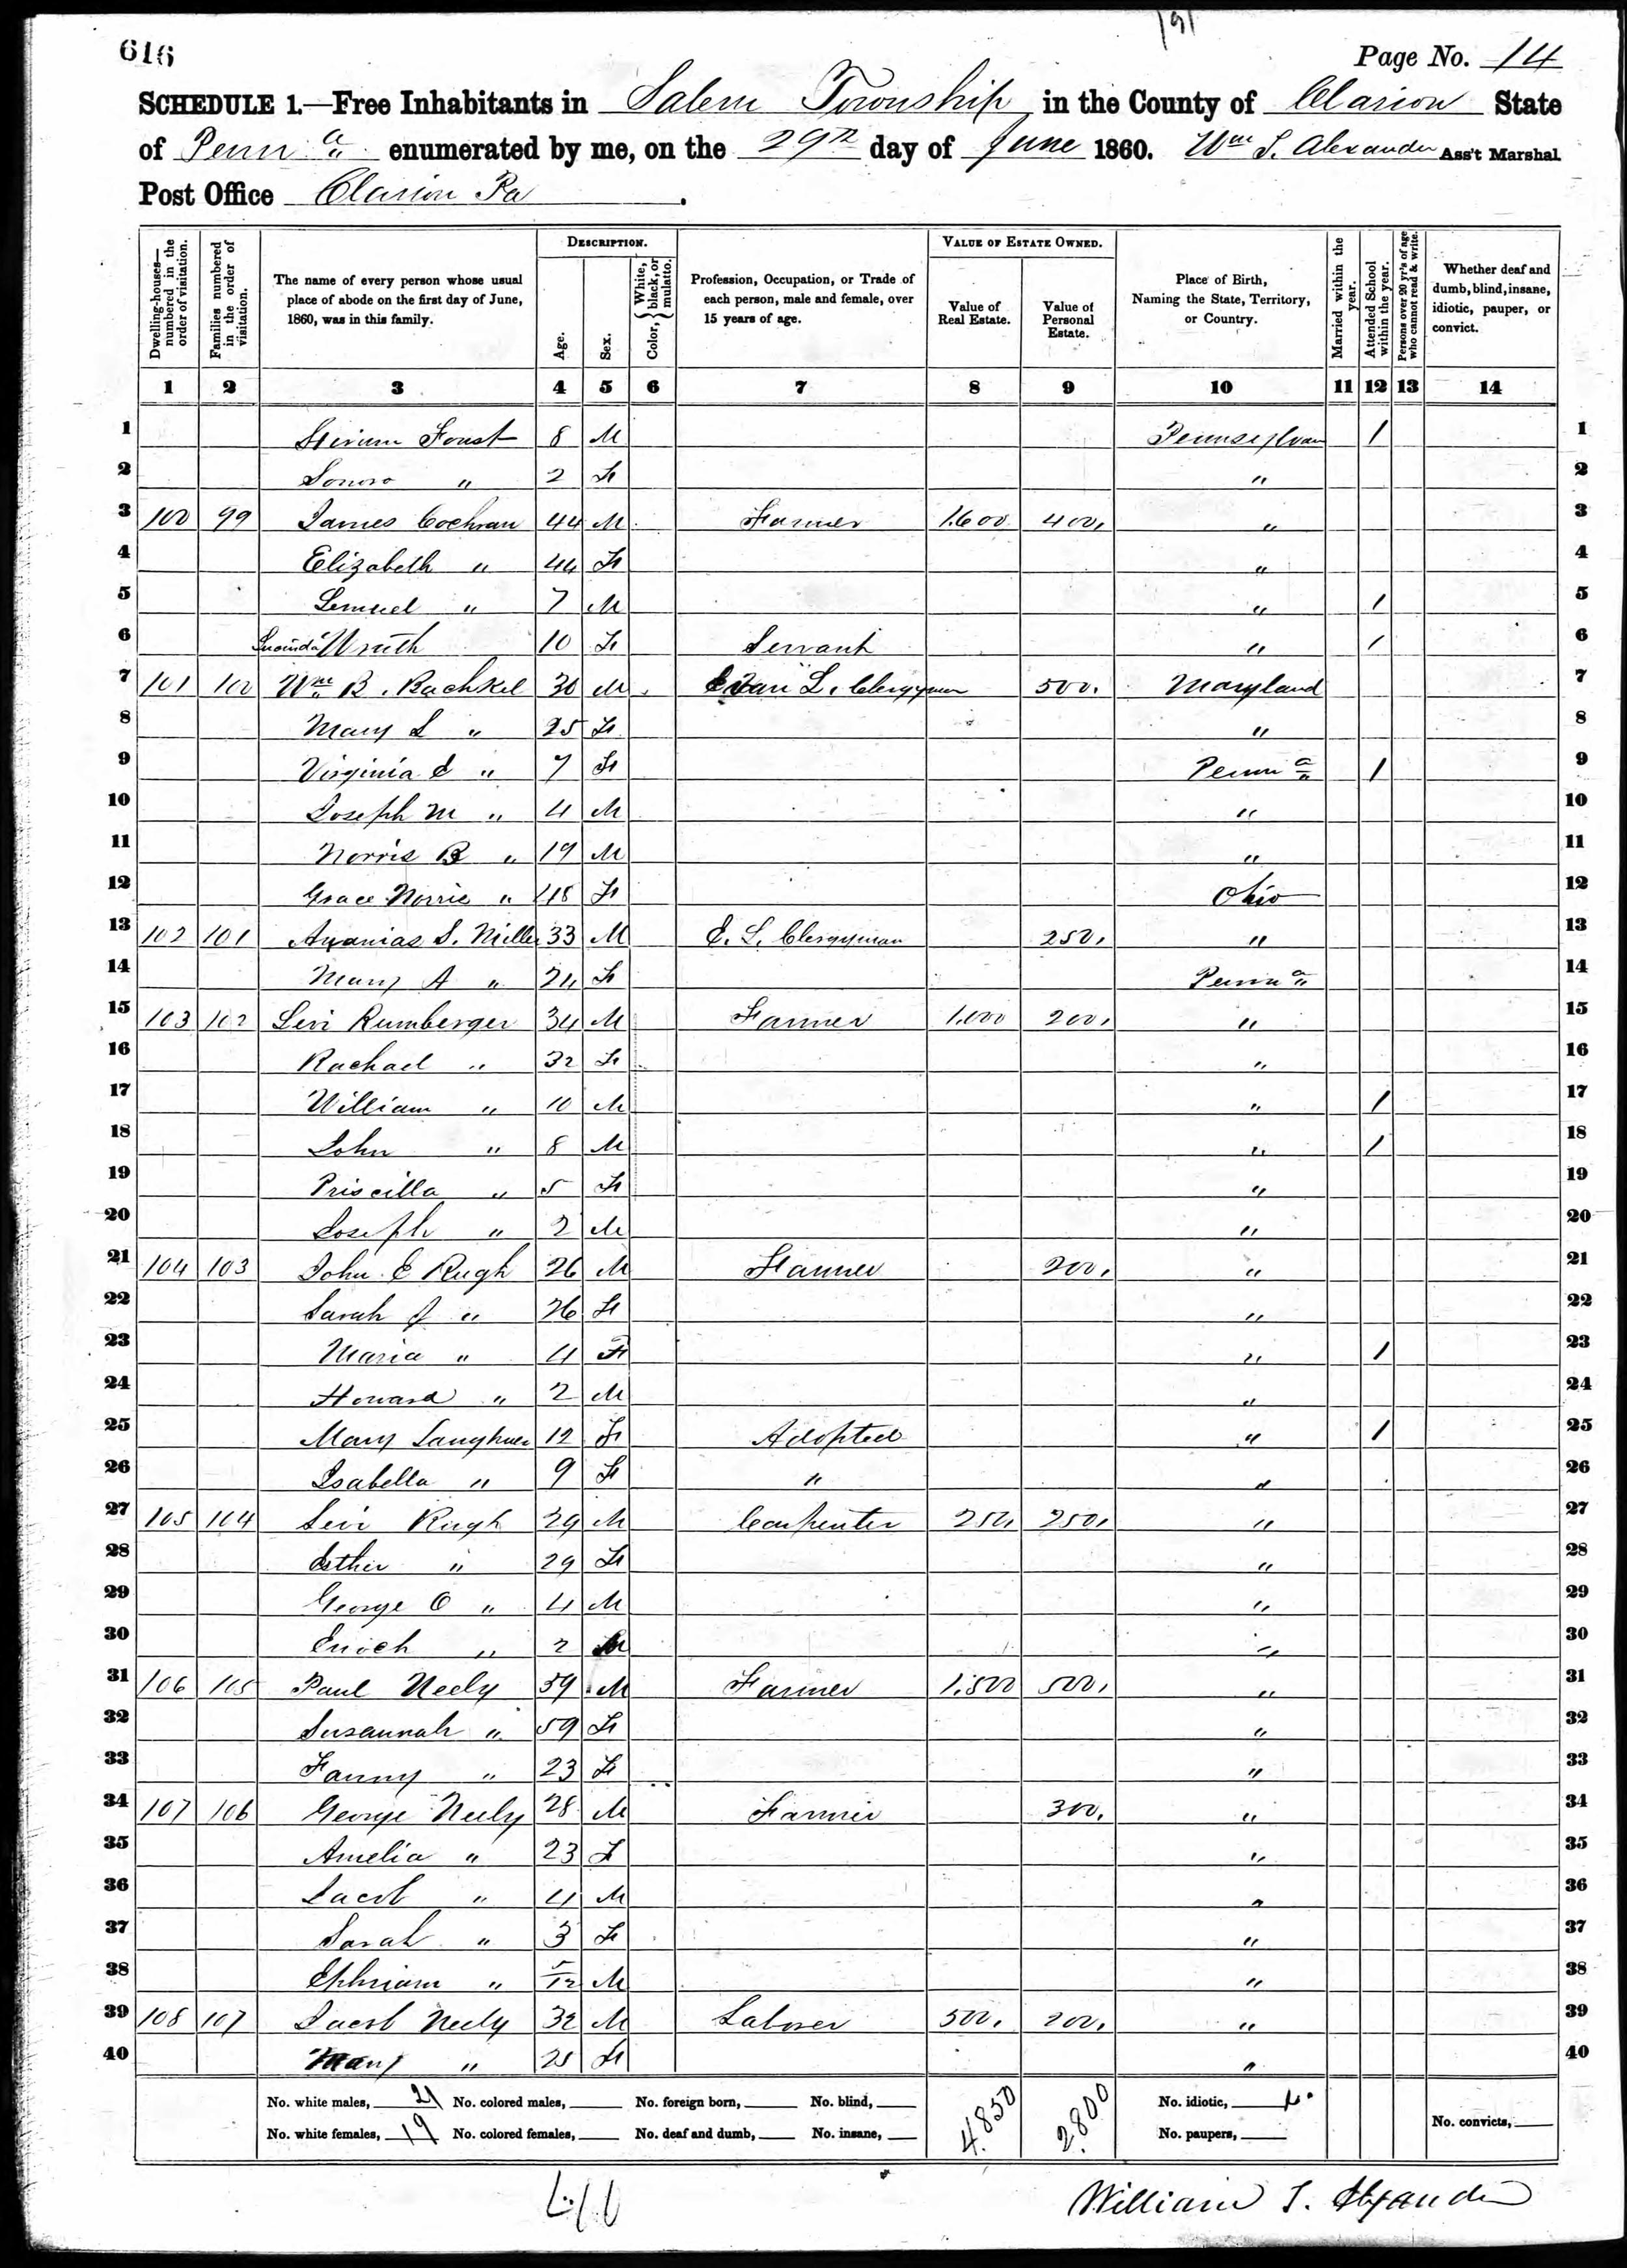 191
616
Page No. 14
SCHEDULE 1.—Free Inhabitants in Salem Township in the County of Clarion State
of Penn a enumerated by me, on the 29th day of June 1860. Wm S. Alexander Ass't Marshal
Post Office Clarion Pa .
Dwelling-houses—numbered in the order of visitation. Families numbered in the order of visitation. The name of every person whose usual place of abode on the first day of June, 1860, was in this family. DESCRIPTION. Age. Sex. Color, { White, black, or mulatto. Profession, Occupation, or Trade of each person, male and female, over 15 years of age. VALUE OF ESTATE OWNED. Value of Real Estate. Value of Personal Estate. Place of Birth, Naming the State, Territory, or Country. Married within the year. Attended School within the year. Persons over 20 yr's of age who cannot read & write. Whether deaf and dumb, blind, insane, idiotic, pauper, or convict.
1 2 3 4 5 6 7 8 9 10 11 12 13 14
1 Hiram Foust 8 M Pennsylvan 1 1
2 Sonoro " 2 F " 2
3 100 99 James Cochran 44 M Farmer 1.600 400, " 3
4 Elizabeth " 44 F " 4
5 Lemuel " 7 M " 1 5
6 10 F Servant " 1 6
7 101 100 Wm B. Bachtel 30 M Evan L. Clergyman 500. Maryland 7
8 Mary L " 25 F " 8
9 Virginia E " 7 F Penn a 1 9
10 Joseph M " 4 M " 10
11 Norris B " 19 M " 11
12 Grace Norris " 18 F Ohio 12
13 102 101 Ananias S. Miller 33 M E. L. Clergyman 250, " 13
14 Mary A " 24 F Penn a 14
15 103 102 Levi Rumberger 34 M Farmer 1.000 200, " 15
16 Rachael " 32 F " 16
17 William " 10 M " 1 17
18 John " 8 M " 1 18
19 Priscilla " 5 F " 19
20 Joseph " 2 M " 20
21 104 103 John E Rugh 26 M Farmer 200, " 21
22 Sarah J " 26 F " 22
23 Maria " 4 F " 1 23
24 Howard " 2 M " 24
25 Mary 12 F Adopted " 1 25
26 Isabella " 9 F " " 26
27 105 104 Levi Rugh 29 M Carpenter 250, 250, " 27
28 Esther " 29 F " 28
29 George O " 4 M " 29
30 Enoch " 2 M " 30
31 106 105 Paul Neely 59 M Farmer 1.500 500, " 31
32 Susannah " 59 F " 32
33 Fanny " 23 F " 33
34 107 106 George Neely 28 M Farmer 300, " 34
35 Amelia " 23 F " 35
36 Jacob " 4 M " 36
37 Sarah " 3 F " 37
38 Ephriam " 5/12 M " 38
39 108 107 Jacob Neely 32 M Laborer 500, 200, " 39
40 Mary " 25 F " 40
No. white males, 21 No. colored males, No. foreign born, No. blind, 4.850 2.800 No. idiotic,
No. white females, 19 No. colored females, No. deaf and dumb, No. insane, No. paupers, No. convicts,
William S. Alexander